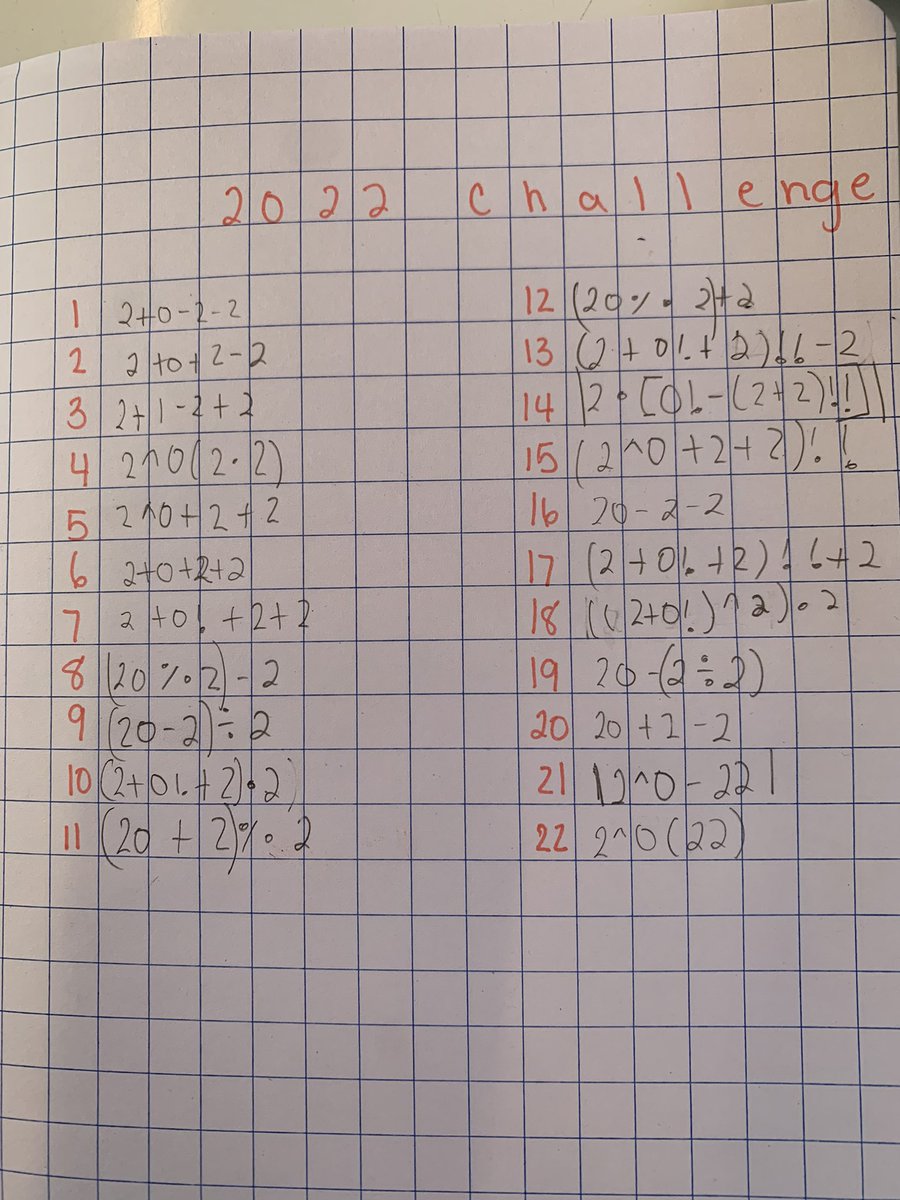 2022 challenge
1 2+0-2-2
2 2+0+2-2
3 2+1-2+2
4 2^0(2·2)
5 2^0+2+2
6 2+0+2+2
7 2+0!+2+2
8 (20%2)-2
9 (20-2)÷2
10 (2+0!+2)·2)
11 (20+2)%2
12 (20%2)+2
13 (2+0!+2)!!-2
14 |2·[0!-(2+2)!!]|
15 (2^0+2+2)!!
16 20-2-2
17 (2+0!+2)!!+2
18 ((2+0!)^2)·2
19 20-(2÷2)
20 20+2-2
21 |2^0-22|
22 2^0(22)